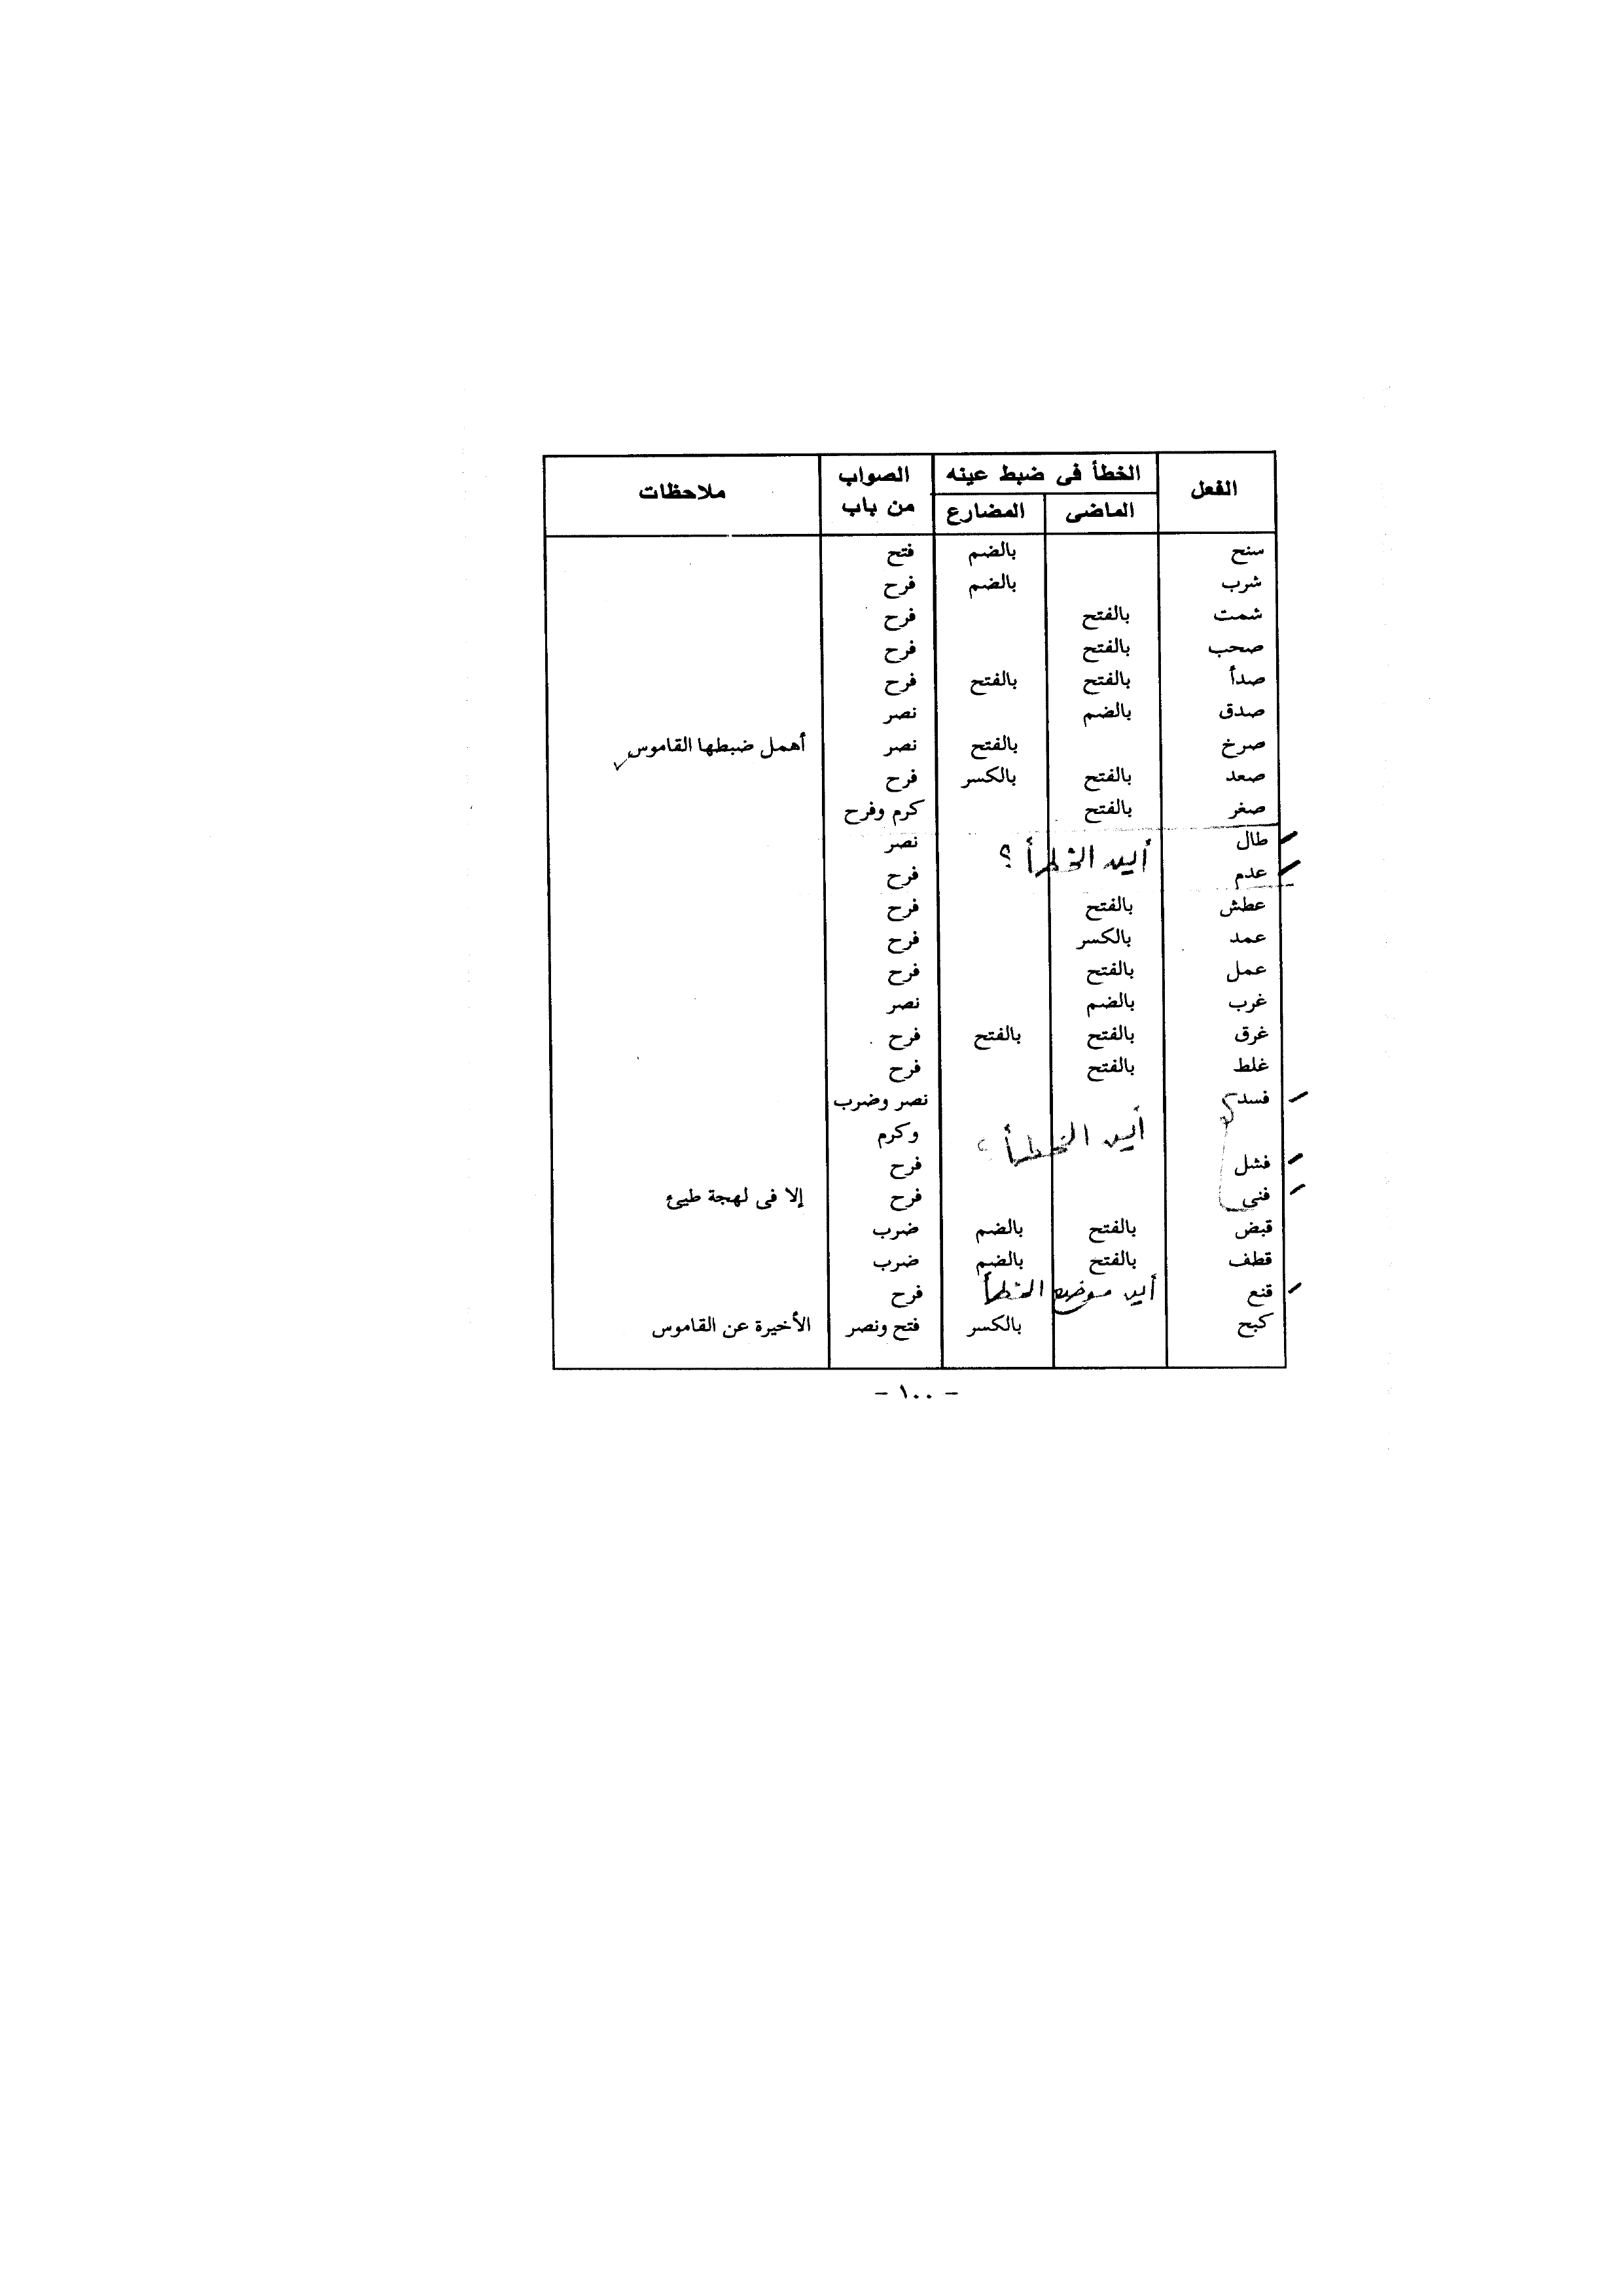 الفعل الخطأ فى ضبط عينه الصواب من باب ملاحظات
الماضى المضارع
سنح بالضم فتح
شرب بالضم فرح
شمت بالفتح فرح
صحب بالفتح فرح
صدأ بالفتح بالفتح فرح
صدق بالضم نصر
صرخ بالفتح نصر أهمل ضبطها القاموس
صعد بالفتح بالكسر فرح
صغر بالفتح كرم وفرح
طال نصر
أين الخطأ ؟
عدم فرح
عطش بالفتح فرح
عمد بالكسر فرح
عمل بالفتح فرح
غرب بالضم نصر
غرق بالفتح بالفتح فرح
غلط بالفتح فرح
فسد نصر وضرب
وكرم
أين الخطأ ؟
فشل فرح
فنى فرح إلا فى لهجة طيئ
قبض بالفتح بالضم ضرب
قطف بالفتح بالضم ضرب
قنع أين موضع الخطأ فرح
كبح بالكسر فتح ونصر الأخيرة عن القاموس
– ١٠٠ –